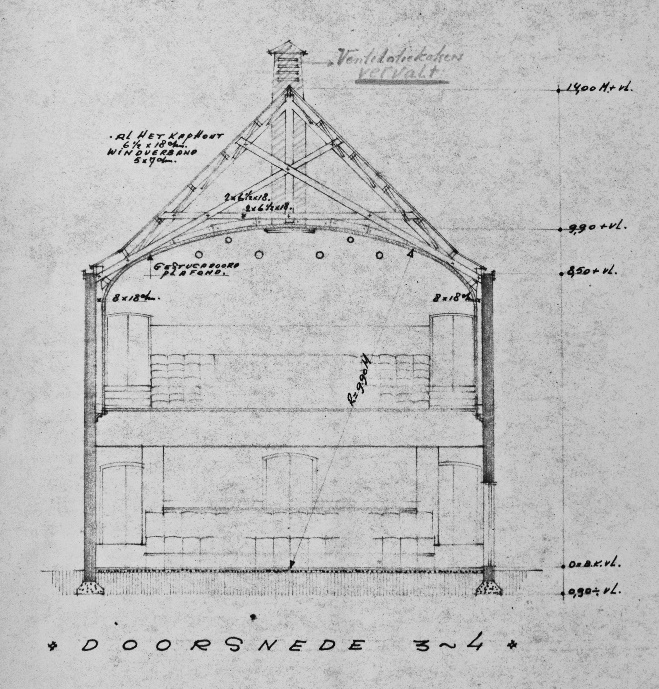 Ventilatiekoker
vervalt
14,00 M.+ vl.
AL HET KAPHOUT
6½ x 18 cm.
WINDVERBAND
5x7 cm.
2x6½x18.
2x6½x18.
9,90 + vl.
GESTUCADOORD
PLAFOND.
8,50 + vl.
8x18 cm.
8x18 cm.
R= 9.90 M
O= B.K. vl.
0,90 ÷ vl.
* DOORSNEDE 3~4 *